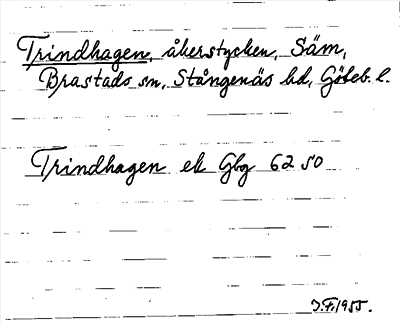 Trindhagen, åkerstycken, Säm,
Brastads sn, Stångenäs hd, Göteb. l.
Trindhagen ek Gbg 62 50
J.F. 1955.